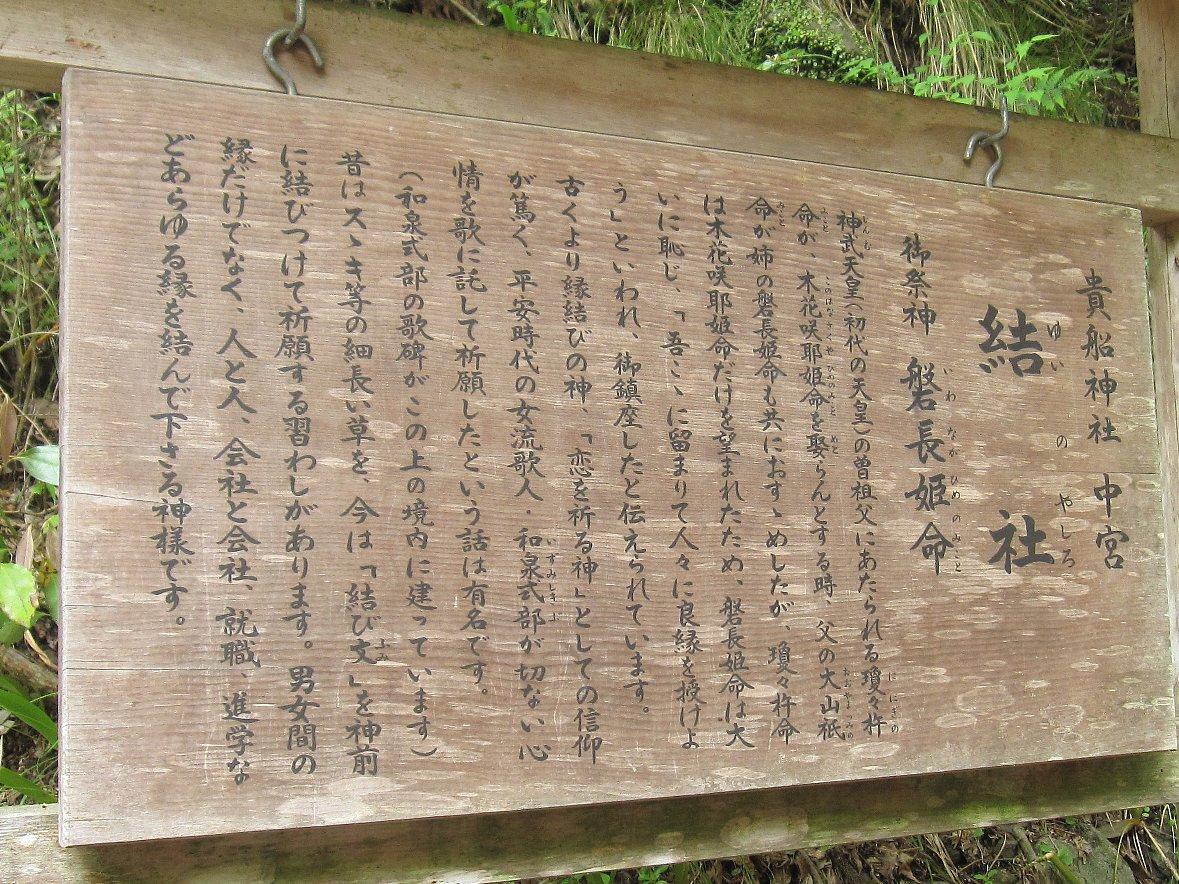 貴船神社 中宮
結社
ゆいのやしろ
御祭神 磐長姫命
いわながひめのみこと
神武天皇(初代の天皇)の曽祖父にあたられる瓊々杵
じんむ ににぎの
命が、木花咲耶姫命を娶らんとする時、父の大山祇
みこと このはなさくやひめのみこと めと おおやまつみの
命が姉の磐長姫命も共におすゝめしたが、瓊々杵命
みこと
は木花咲耶姫命だけを望まれたため、磐長姫命は大
いに恥じ、「吾こゝに留まりて人々に良縁を授けよ
う」といわれ、御鎮座したと伝えられています。
古くより縁結びの神、「恋を祈る神」としての信仰
が篤く、平安時代の女流歌人・和泉式部が切ない心
いずみしきぶ
情を歌に託して祈願したという話は有名です。
(和泉式部の歌碑がこの上の境内に建っています)
昔はスゝキ等の細長い草を、今は「結び文」を神前
ふみ
に結びつけて祈願する習わしがあります。男女間の
縁だけでなく、人と人、会社と会社、就職、進学な
どあらゆる縁を結んで下さる神様です。